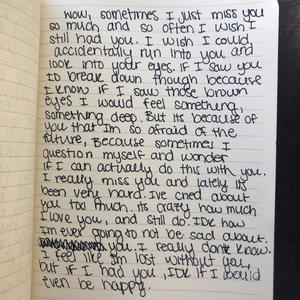 Wow, sometimes I just miss you
so much and so often I wish I
still had you. I wish I could
accidentally run into you and
look into your eyes. If I saw you
Id break down though because
I know if I saw those brown
eyes I would feel something,
something deep. But its because of
you that Im so afraid of the
future, Because sometimes I
question myself and wonder
if I can actually do this with you.
I really miss you and lately its
been very hard. Ive cried about
you too much, its crazy how much
I love you, and still do. Idk how
Im ever going to not be sad about
you. I really dont know.
I feel like Im lost without you,
but if I had you, Idk if I would
even be happy.